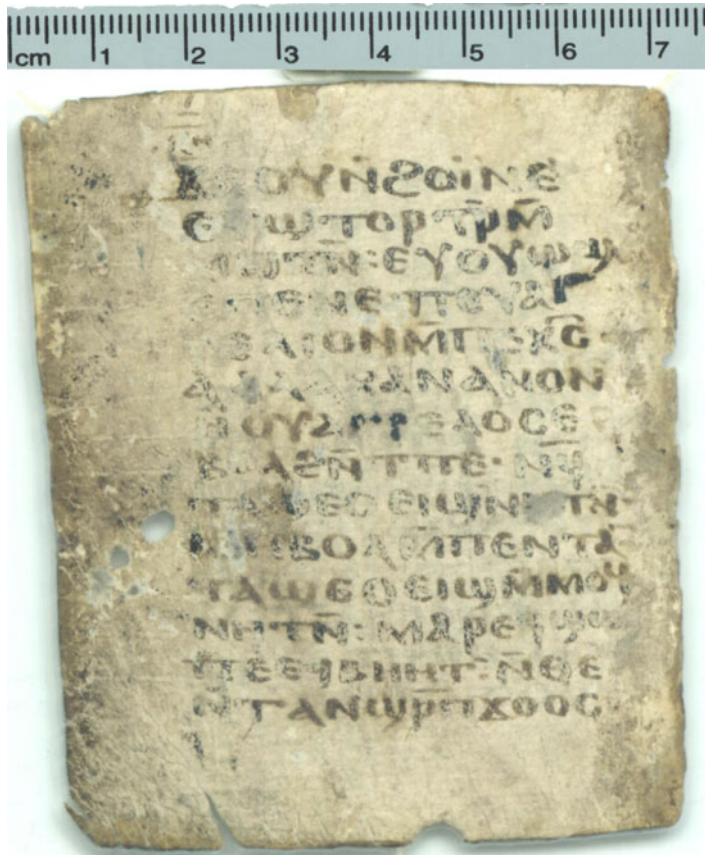 ϫⲉⲟⲩⲛ̄ϩⲟⲓ̈ⲛⲉ
ⲉⲩϣⲧⲟⲣⲧⲣ̄ⲙ̄
ⲙⲱⲧⲛ̄:ⲉⲩⲟⲩⲱϣ
ⲉⲡⲉⲛⲉ·ⲡⲉⲩⲁⲅ
ⲅⲉⲗⲓⲟⲛⲙ̄ⲡⲉⲭ̄ⲥ̄
ⲁⲗⲗⲁⲕⲁⲛⲁⲛⲟⲛ
ⲏⲟⲩⲁⲅⲅⲉⲗⲟⲥⲉ
ⲃⲟⲗϩⲛ̄ⲧⲡⲉ·ⲛϥ̄
ⲧⲁϣⲉⲟⲉⲓϣⲛⲏⲧⲛ̄
ⲃⲟⲗⲙ̄ⲡⲉⲛⲧⲁ
ⲧⲁϣⲉⲟⲉⲓϣⲙ̄ⲙⲟϥ
ⲛⲏⲧⲛ̄:ⲙⲁⲣⲉϥϣⲱ
ⲡⲉⲉϥⲃⲏⲧ:ⲛ̄ⲑⲉ
ⲛⲧⲁⲛϣⲣ̄ⲡϫⲟⲟⲥ